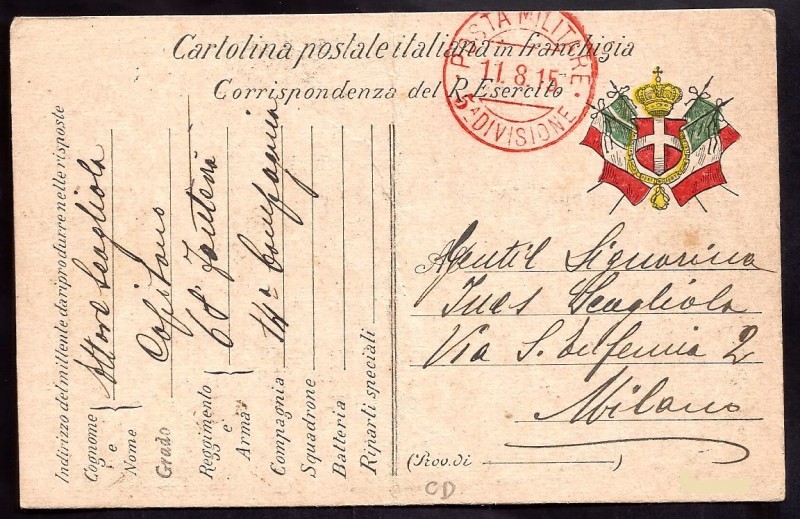 Cartolina postale italiana in franchigia
Corrispondenza del R. Esercito
POSTA MILITARE
11.8.15
5ª DIVISIONE
Indirizzo del mittente da riprodurre nelle risposte
Cognome e Nome
Ettore Scagliola
Grado
Capitano
Reggimento e Arma
68 Fanteria
Compagnia
14ª Compagnia
Squadrone
Batteria
Riparti speciali
Gentil Signorina
Ines Scagliola
Via S. Eufemia 2
Milano
(Prov. di )
CD